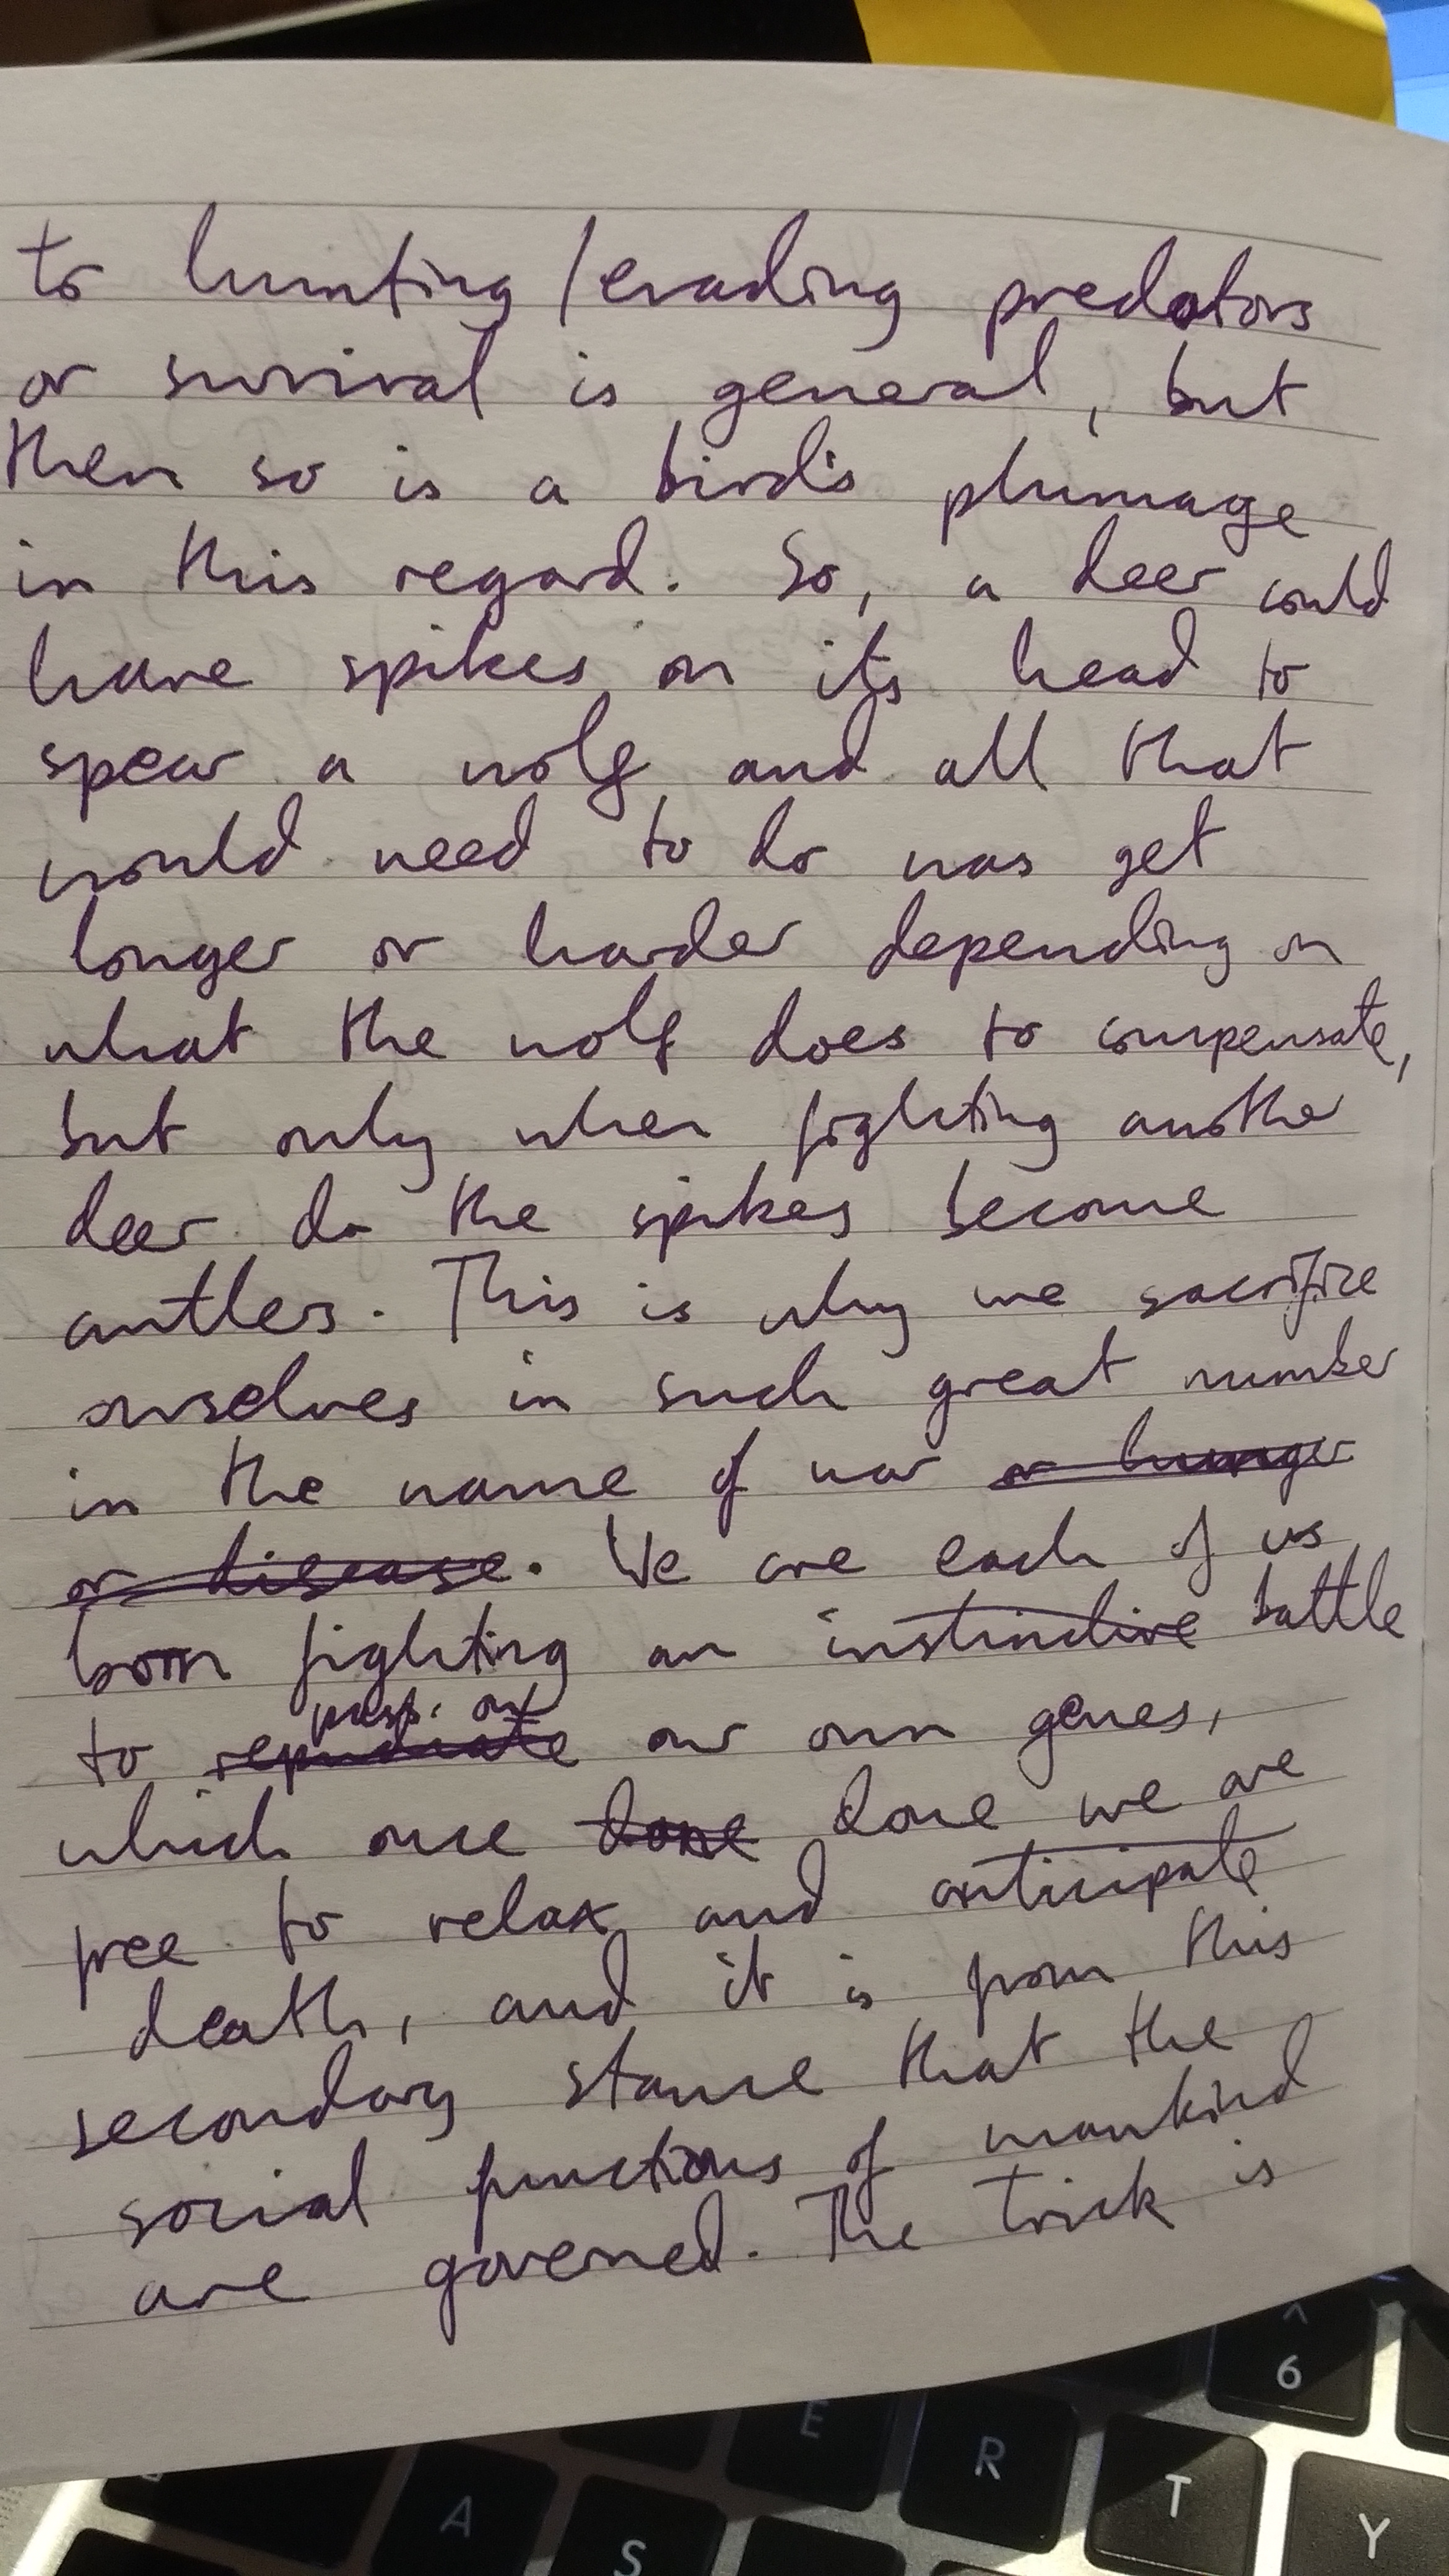 to hunting / evading predators
or survival is general, but
then so is a bird's plumage
in this regard. So, a deer could
have spikes on its head to
spear a wolf and all that
would need to do was get
longer or harder depending on
what the wolf does to compensate,
but only when fighting another
deer do the spikes become
antlers. This is why we sacrifice
ourselves in such great number
in the name of war or hunger
or disease. We are each of us
born fighting an instinctive battle
to repudiate our own genes,
which once done done we are
free to relax and anticipate
death, and it is from this
secondary stance that the
social functions of mankind
are governed. The trick is
^
6
E
R
T
Y
A
S